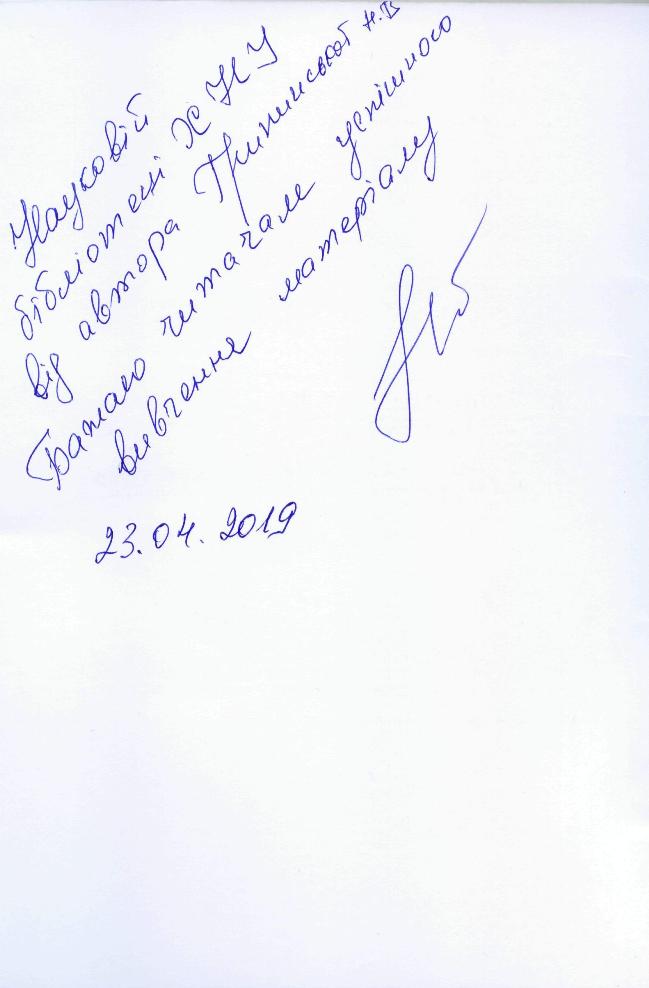 Науковій
бібліотеці ХНУ
від автора Трипинської Н.В
Бажаю читачам успішного
вивчення матеріалу
23.04.2019